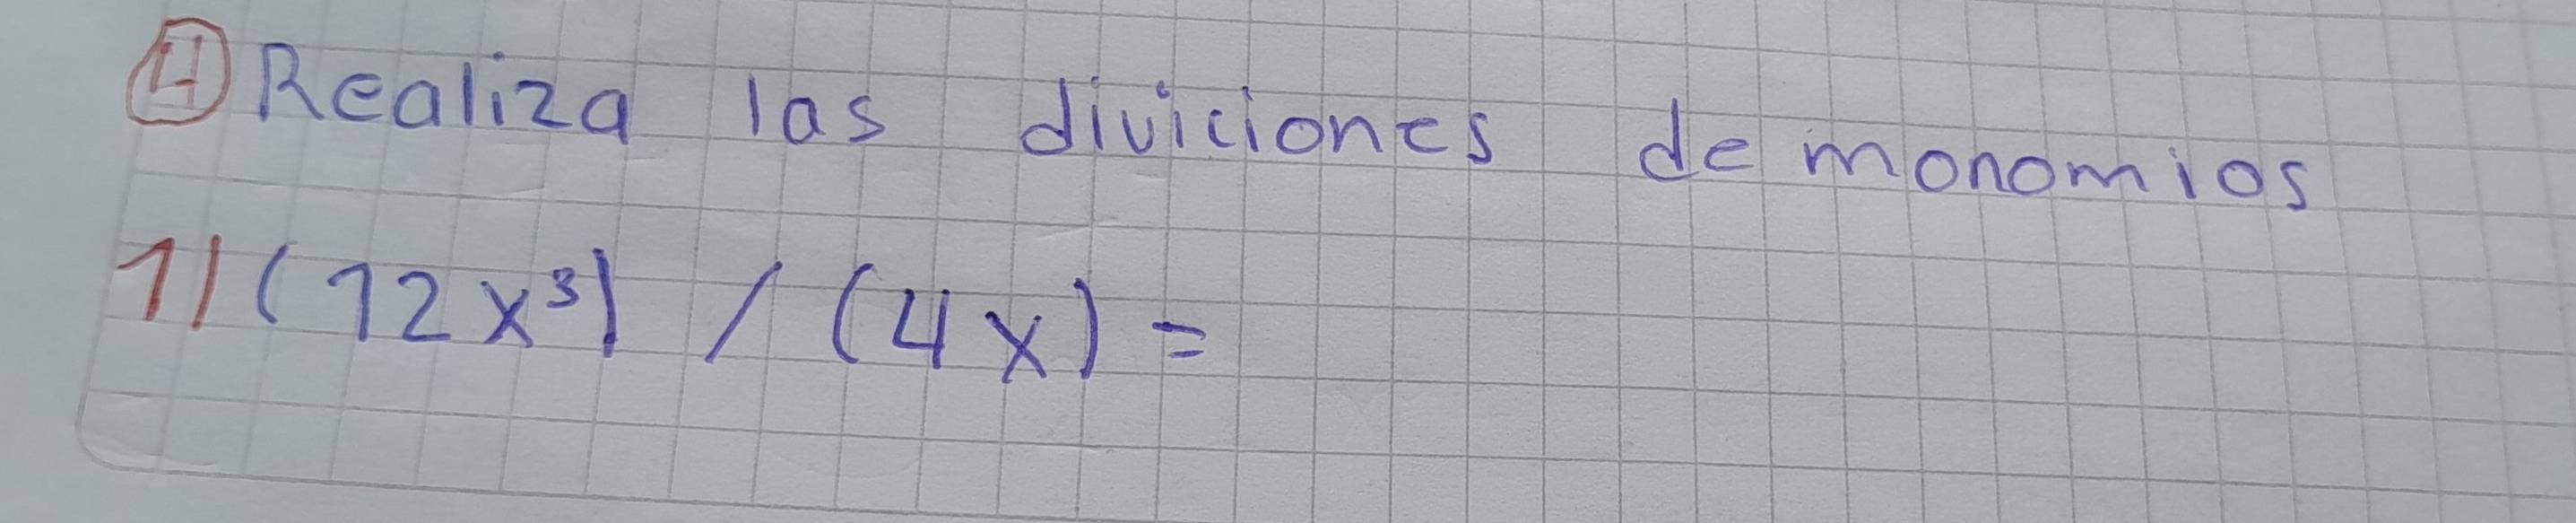 4 Realiza las diviciones de monomios
1) (12x³) / (4x) =